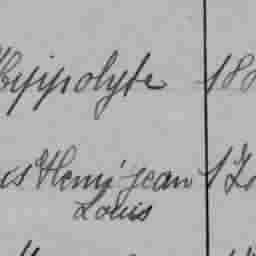 Hyppolyte 18
is Henri jean
Louis